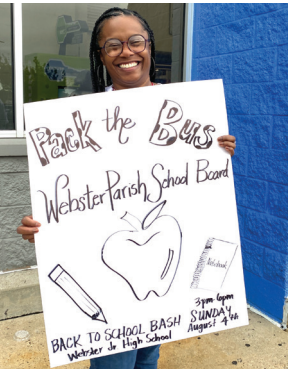 Pack the Bus
Webster Parish School Board
School
3pm-6pm
SUNDAY
August 4th
BACK TO SCHOOL BASH
Webster Jr High School